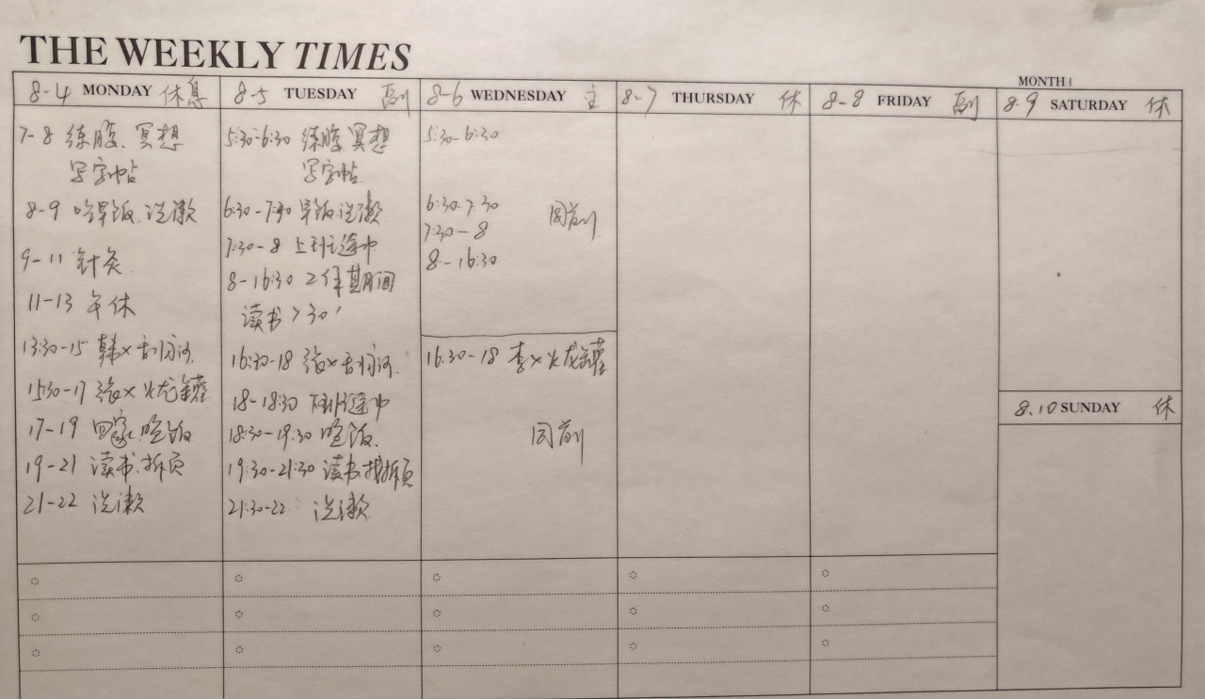 THE WEEKLY TIMES
MONTH
8-4 MONDAY 休息
7-8 练腹、冥想
写字帖
8-9 吃早饭、洗漱
9-11 针灸
11-13 午休
13:30-15 韩x刮痧
15:30-17 张x火龙罐
17-19 回家、吃饭
19-21 读书、拆页
21-22 洗漱
8-5 TUESDAY 副
5:30-6:30 练腹冥想
写字帖
6:30-7:30 早饭、洗漱
7:30-8 上班途中
8-16:30 工作期间
读书>30'
16:30-18 张x刮痧
18-18:30 途中
18:30-19:30 吃饭
19:30-21:30 读书拆页
21:30-22 洗漱
8-6 WEDNESDAY 主
5:30-6:30
6:30-7:30 同前
7:30-8
8-16:30
16:30-18 李x火龙罐
同前
8-7 THURSDAY 休
8-8 FRIDAY 副
8.9 SATURDAY 休
8.10 SUNDAY 休